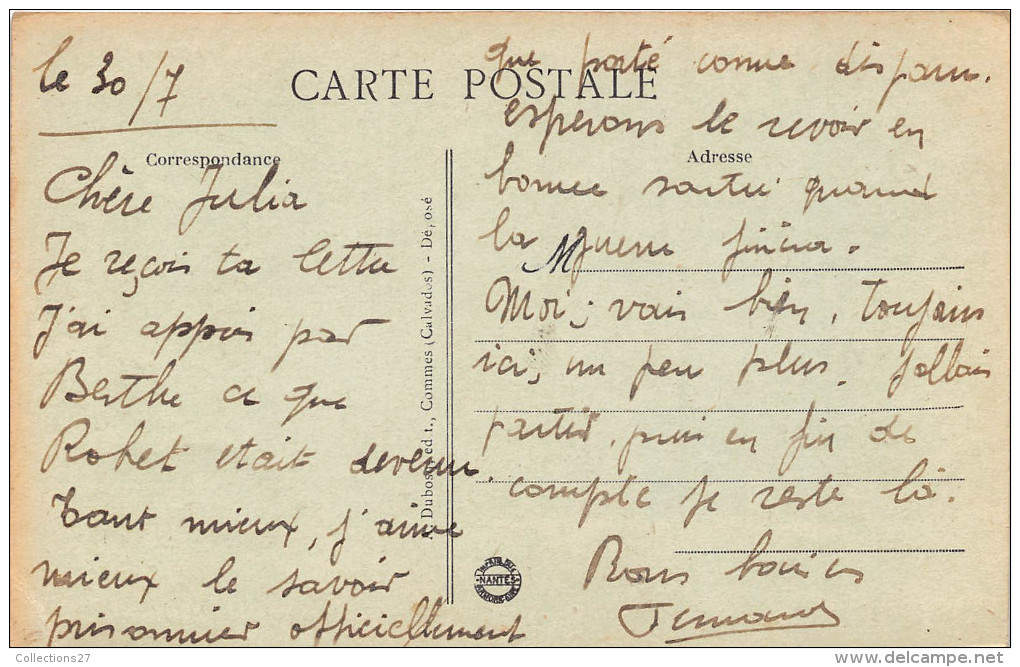 le 30/7
CARTE POSTALE
Correspondance
Chère Julia
Je reçois ta lettre
J'ai appris par
Berthe ce que
Robet etait devenu
Tant mieux, j'aime
mieux le savoir
prisonnier officiellement
Dubosq, ed t., Commes (Calvados) - Déposé
NANTES
Adresse
M
que porté comme disparu.
esperons le revoir en
bonne santé quand
la guerre finira.
Moi, vais bien, toujours
ici, un peu plus. Jallais
partir, puis en fin de
compte je reste là.
Bons baisers
Fernand
Collections27
http://www.delcampe.net